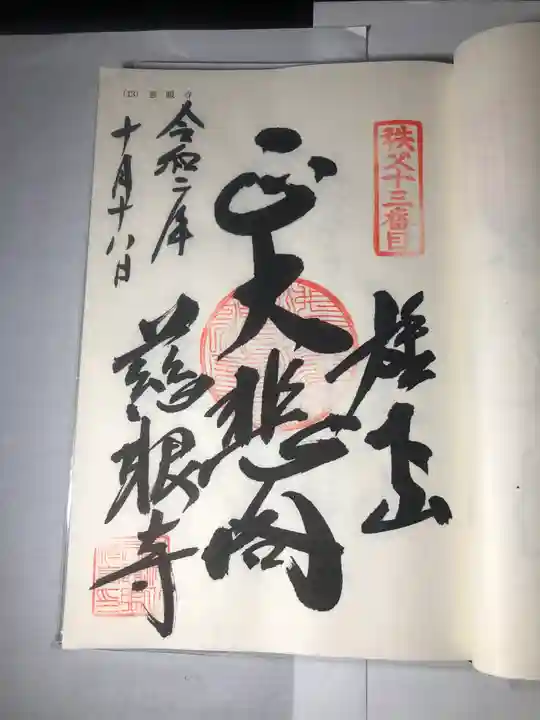 秩父十三番目
旗下山
正大悲閣
慈眼寺
令和二年
十月十八日
(13) 慈眼寺